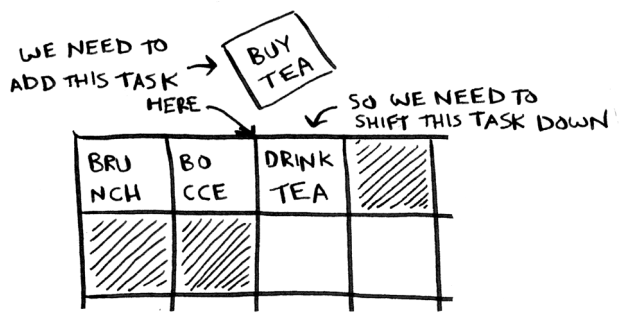 WE NEED TO
ADD THIS TASK
HERE
BUY
TEA
SO WE NEED TO
SHIFT THIS TASK DOWN
BRU
NCH
BO
CCE
DRINK
TEA